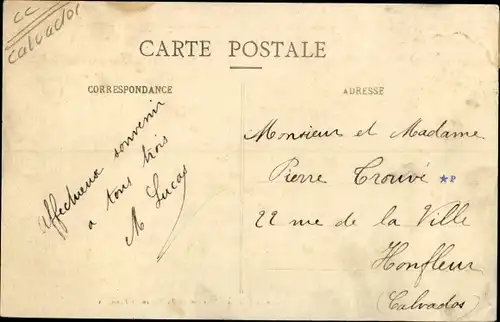 CC
Calvados
CARTE POSTALE
CORRESPONDANCE
ADRESSE
Affectueux souvenir
a tous trois
M Lucas
Monsieur et Madame
Pierre Trouvé *P
22 rue de la Ville
Honfleur
(Calvados)